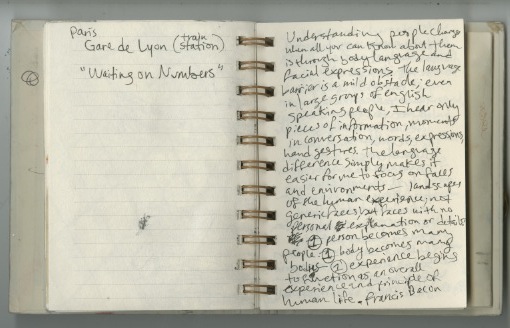 Paris
Gare de Lyon (train station)
"Waiting on Numbers"
Understanding people change
when all you can know about them
is through body language and
facial expressions. The language
barrier is a mild obstacle; even
in large groups of english
speaking people, I hear only
pieces of information, moments
in conversation, words, expressions,
hand gestures. The language
difference simply makes it
easier for me to focus on faces
and environments — landscapes
of the human experience; not
generic faces but faces with no
personal explanation or details.
1 person becomes many
people. 1 body becomes many
bodys — 1 experience begins
to function as an overall
experience and principle of
human life. Francis Bacon